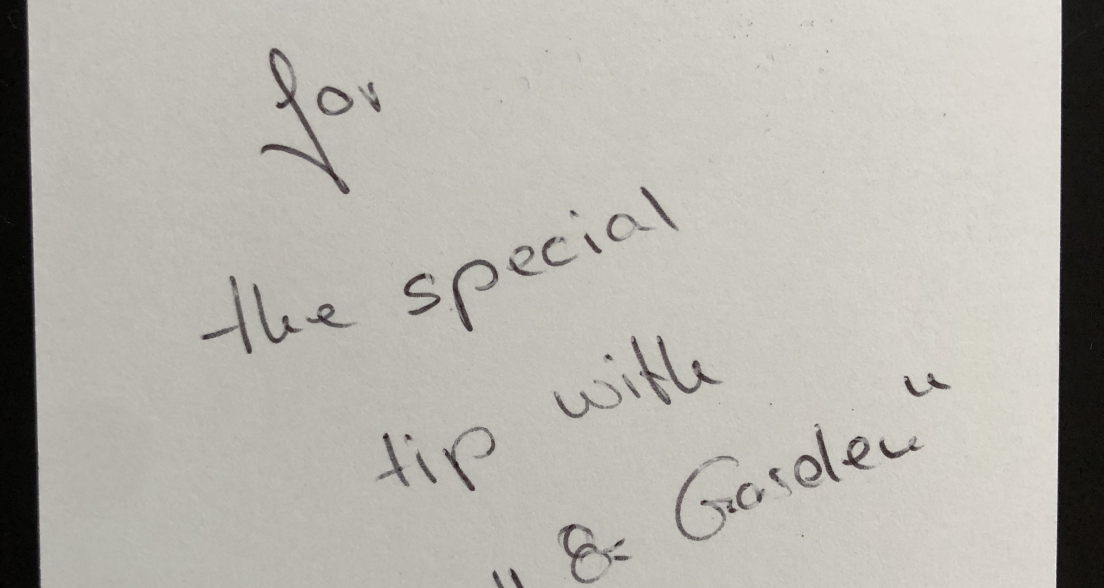 for
the special
tip with
& Garden"